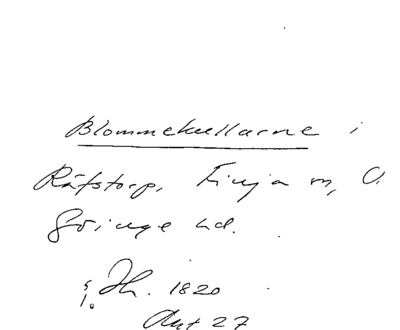 Blommekullarne i
Råfstorp, Finja sn, V.
Göinge hd.
Jh. 1820
Akt 27